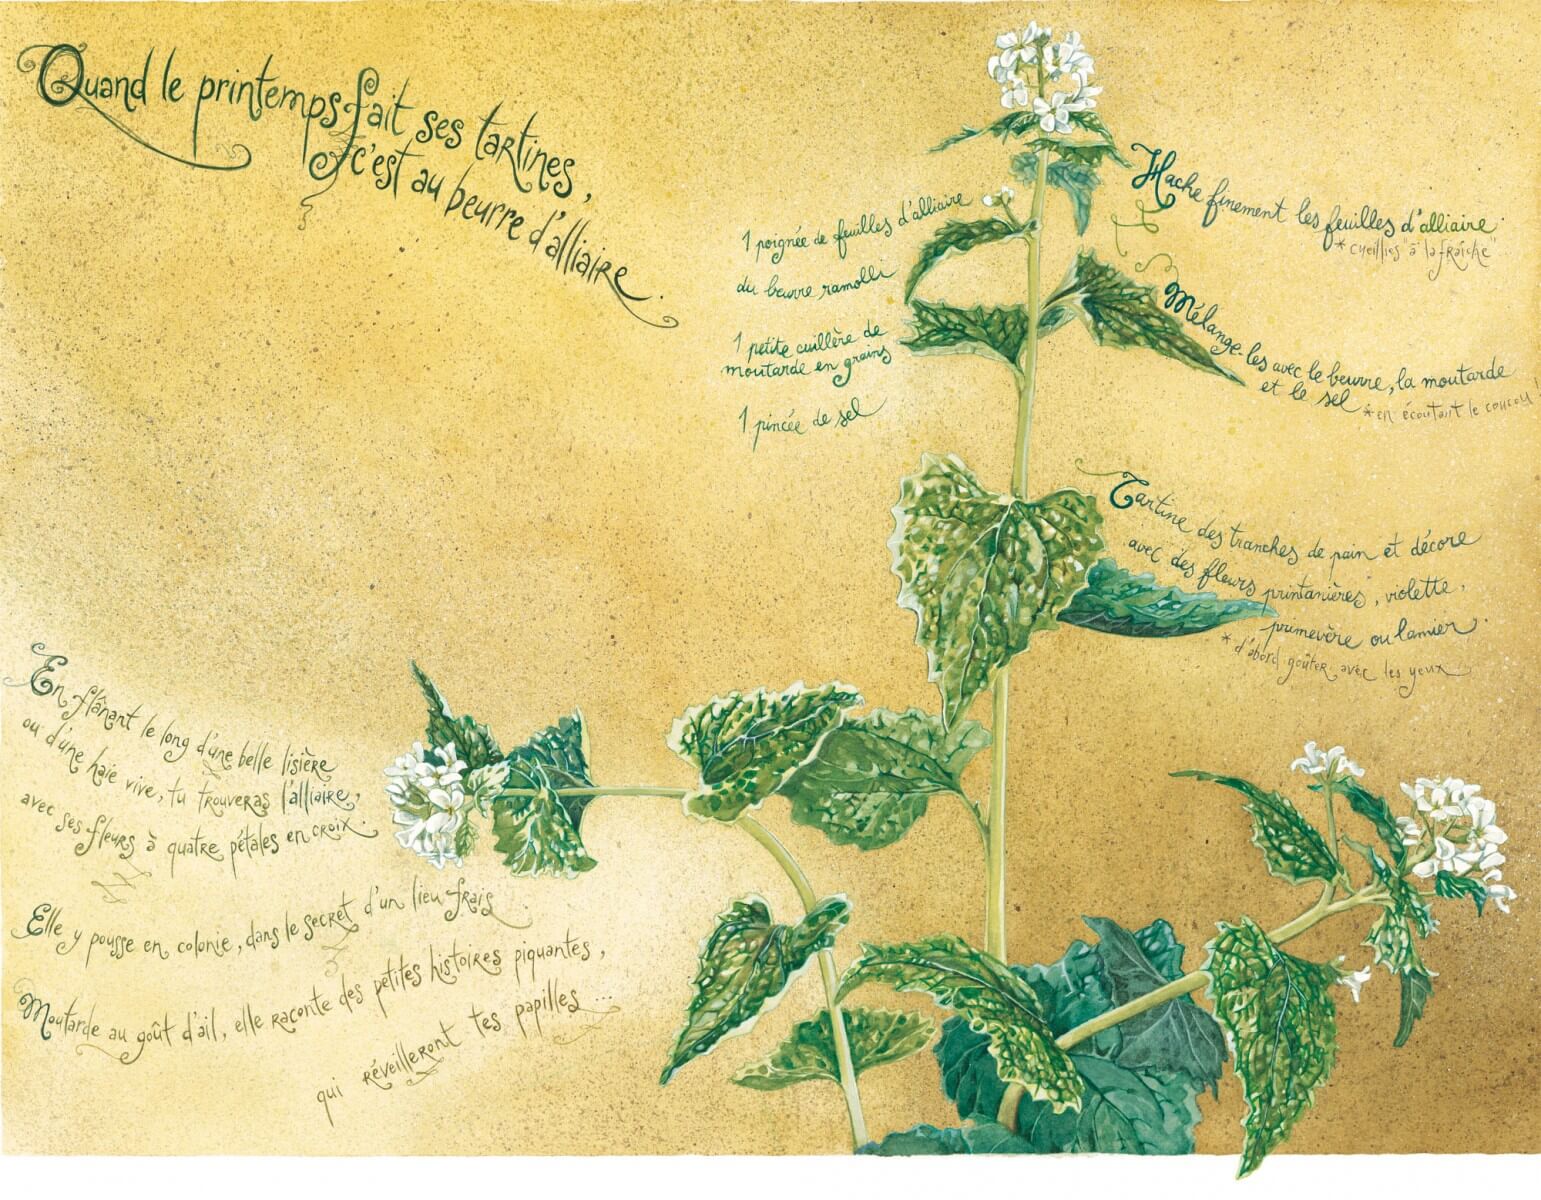 Quand le printemps fait ses tartines,
c'est au beurre d'alliaire.
1 poignée de feuilles d'alliaire
du beurre ramolli
1 petite cuillère de
moutarde en grains
1 pincée de sel
Hache finement les feuilles d'alliaire.
*cueillies "à la fraîche"
Mélange-les avec le beurre, la moutarde
et le sel
*en écoutant le coucou
Tartine des tranches de pain et décore
avec des fleurs printanières, violette,
primevère ou lamier.
*d'abord goûter avec les yeux
En flânant le long d'une belle lisière
ou d'une haie vive, tu trouveras l'alliaire,
avec ses fleurs à quatre pétales en croix.
Elle y pousse en colonie, dans le secret d'un lieu frais
Moutarde au goût d'ail, elle raconte des petites histoires piquantes,
qui réveilleront tes papilles...